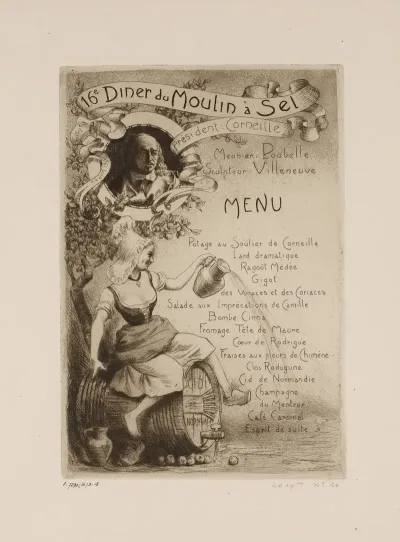 16e Diner du Moulin à Sel
Président Corneille
Meunier: Poubelle
Sculpteur Villeneuve
MENU
Potage au Soulier de Corneille
Lard dramatique
Ragoût Médée
Gigot
des Voraces et des Coriaces
Salade aux Imprécations de Camille
Bombe Cinna
Fromage Tête de Maure
Cœur de Rodrigue
Fraises aux Pleurs de Chimène
Clos Rodogune
Cid de Normandie
Champagne
du Menteur
Café Caronel
Esprit de suite